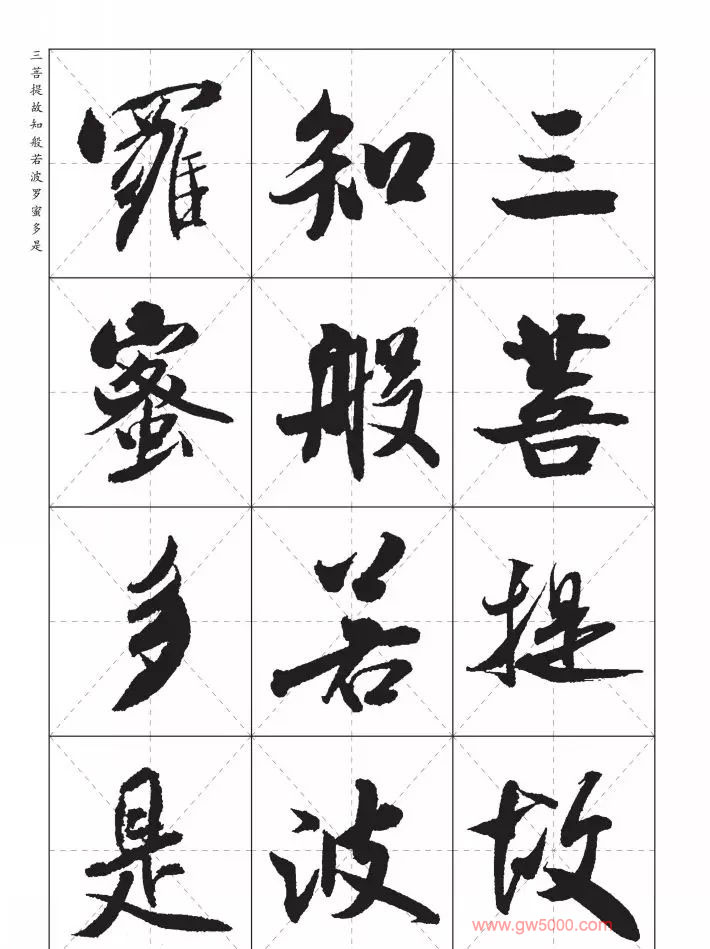 三菩提故知般若波罗蜜多是
三菩提故
知般若波
羅蜜多是
www.gw5000.com